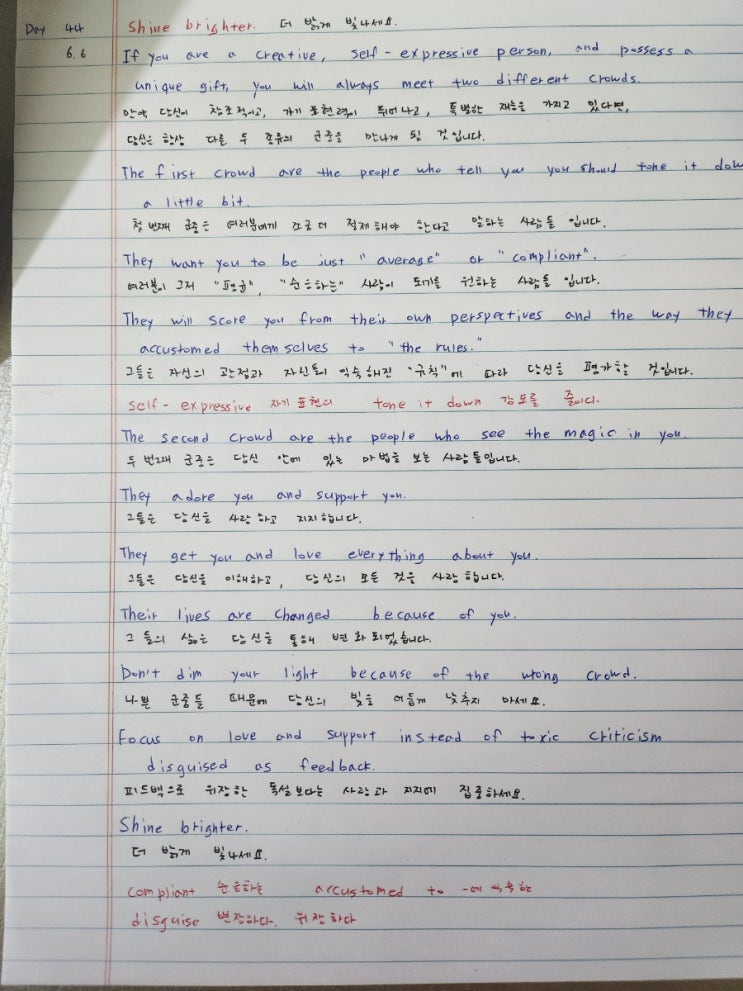 Day 44 Shine brighter. 더 밝게 빛나세요.
6.6 If you are a creative, self-expressive person, and possess a
unique gift, you will always meet two different crowds.
만약 당신이 창조적이고, 자기 표현력이 뛰어나고, 특별한 재능을 가지고 있다면,
당신은 항상 다른 두 종류의 군중을 만나게 될 것입니다.
The first crowd are the people who tell you you should tone it down
a little bit.
첫 번째 군중은 여러분에게 조금 더 절제해야 한다고 말하는 사람들 입니다.
They want you to be just "average" or "compliant".
여러분이 그저 "평균", "순응하는" 사람이 되기를 원하는 사람들 입니다.
They will score you from their own perspectives and the way they
accustomed themselves to "the rules."
그들은 자신의 관점과 자신들이 익숙해진 "규칙"에 따라 당신을 평가할 것입니다.
self-expressive 자기 표현의 tone it down 강도를 줄이다.
The second crowd are the people who see the magic in you.
두 번째 군중은 당신 안에 있는 마법을 보는 사람들입니다.
They adore you and support you.
그들은 당신을 사랑하고 지지합니다.
They get you and love everything about you.
그들은 당신을 이해하고, 당신의 모든 것을 사랑합니다.
Their lives are changed because of you.
그들의 삶은 당신을 통해 변화되었습니다.
Don't dim your light because of the wrong crowd.
나쁜 군중들 때문에 당신의 빛을 어둡게 낮추지 마세요.
Focus on love and support instead of toxic criticism
disguised as feedback.
피드백으로 위장한 독설보다는 사랑과 지지에 집중하세요.
Shine brighter.
더 밝게 빛나세요.
compliant 순응하는 accustomed to -에 익숙한
disguise 변장하다, 위장하다